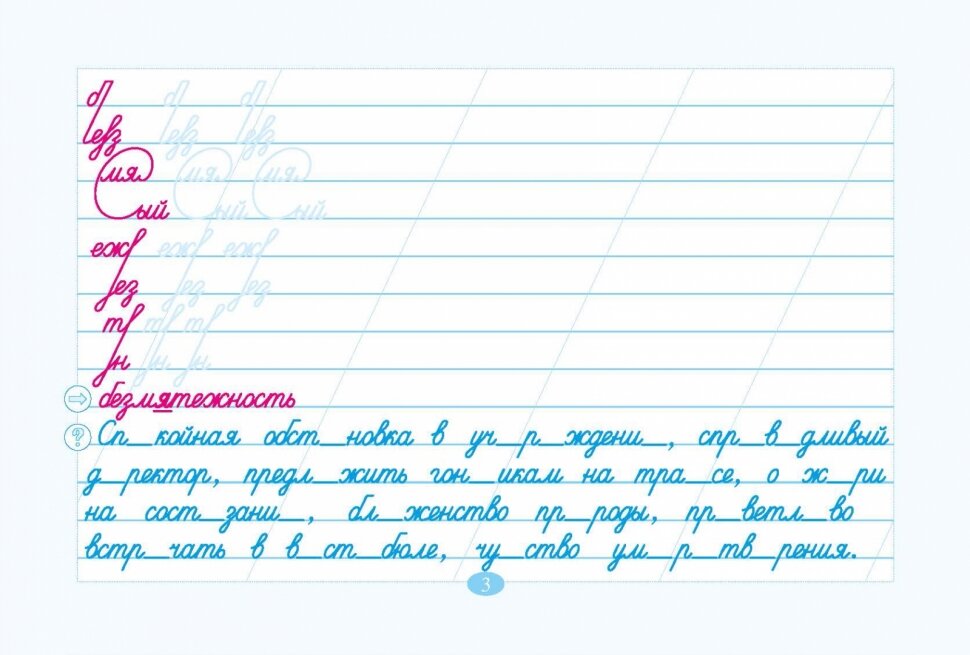 мя мя мя
ый ый ый
еж еж еж
ез ез ез
безмятежность
? Сп_койная обст_новка в уч_р_ждени_, спр_в_дливый
д_ректор, предл_жить гон_икам на тра_се, о ж_ри
на сост_зани_, бл_женство пр_роды, пр_ветл_во
встр_чать в в_ст_бюле, чу_ство ум_р_тв_рения.
3